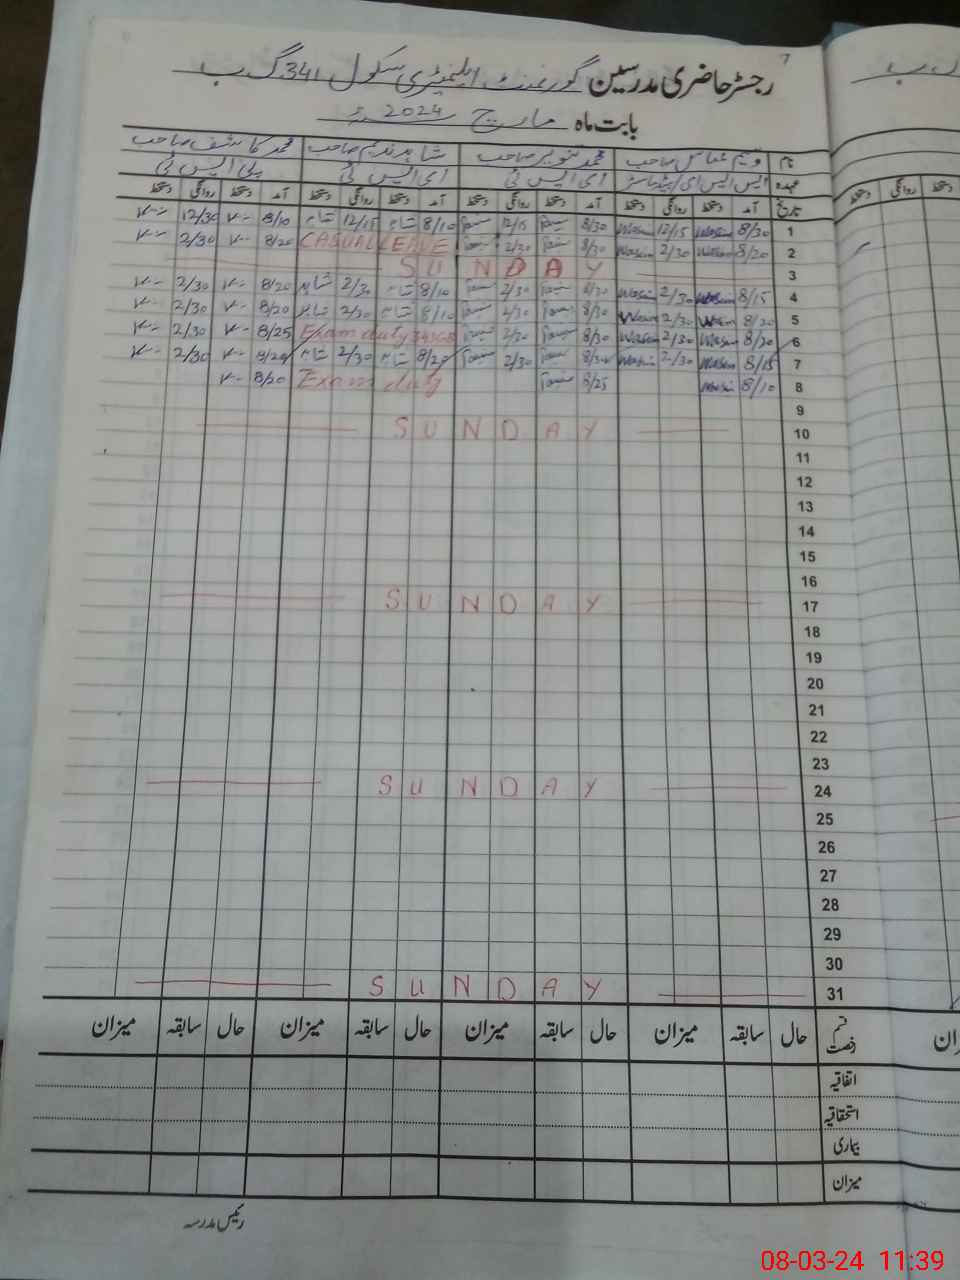 7
رجسٹر حاضری مدرسین گورنمنٹ ایلیمنٹری سکول 341 گ ب
بابت ماہ مارچ 2024ء
نام وسیم عباس صاحب محمد تنویر صاحب شاہد ندیم صاحب محمد کاشف صاحب
عہدہ ایس ایس ای / ہیڈماسٹر ای ایس ٹی ای ایس ٹی پی ایس ٹی
تاریخ آمد دستخط روانگی دستخط آمد دستخط روانگی دستخط آمد دستخط روانگی دستخط آمد دستخط روانگی دستخط
1 8/30 Wasim 12/15 Wasim 8/30 12/15 8/10 شاہد 12/15 شاہد 8/10 12/30
2 8/20 Wasim 2/30 Wasim 8/30 2/30 CASUAL LEAVE 8/20 2/30
3 SUNDAY
4 8/15 Wasim 2/30 Wasim 8/30 2/30 8/10 شاہد 2/30 شاہد 8/20 2/30
5 8/20 Wasim 2/30 Wasim 8/30 2/30 8/10 شاہد 2/30 شاہد 8/20 2/30
6 8/20 Wasim 2/30 Wasim 8/30 2/20 Exam duty 8/25 2/30
7 8/15 Wasim 2/30 Wasim 8/30 2/30 8/20 شاہد 2/30 شاہد 8/20 2/30
8 8/10 Wasim 8/25 Exam duty 8/20
9
10 SUNDAY
11
12
13
14
15
16
17 SUNDAY
18
19
20
21
22
23
24 SUNDAY
25
26
27
28
29
30
31 SUNDAY
قسم رخصت حال سابقہ میزان حال سابقہ میزان حال سابقہ میزان حال سابقہ میزان
اتفاقیہ
استحقاقیہ
بیماری
میزان
رئیس مدرسہ
08-03-24 11:39